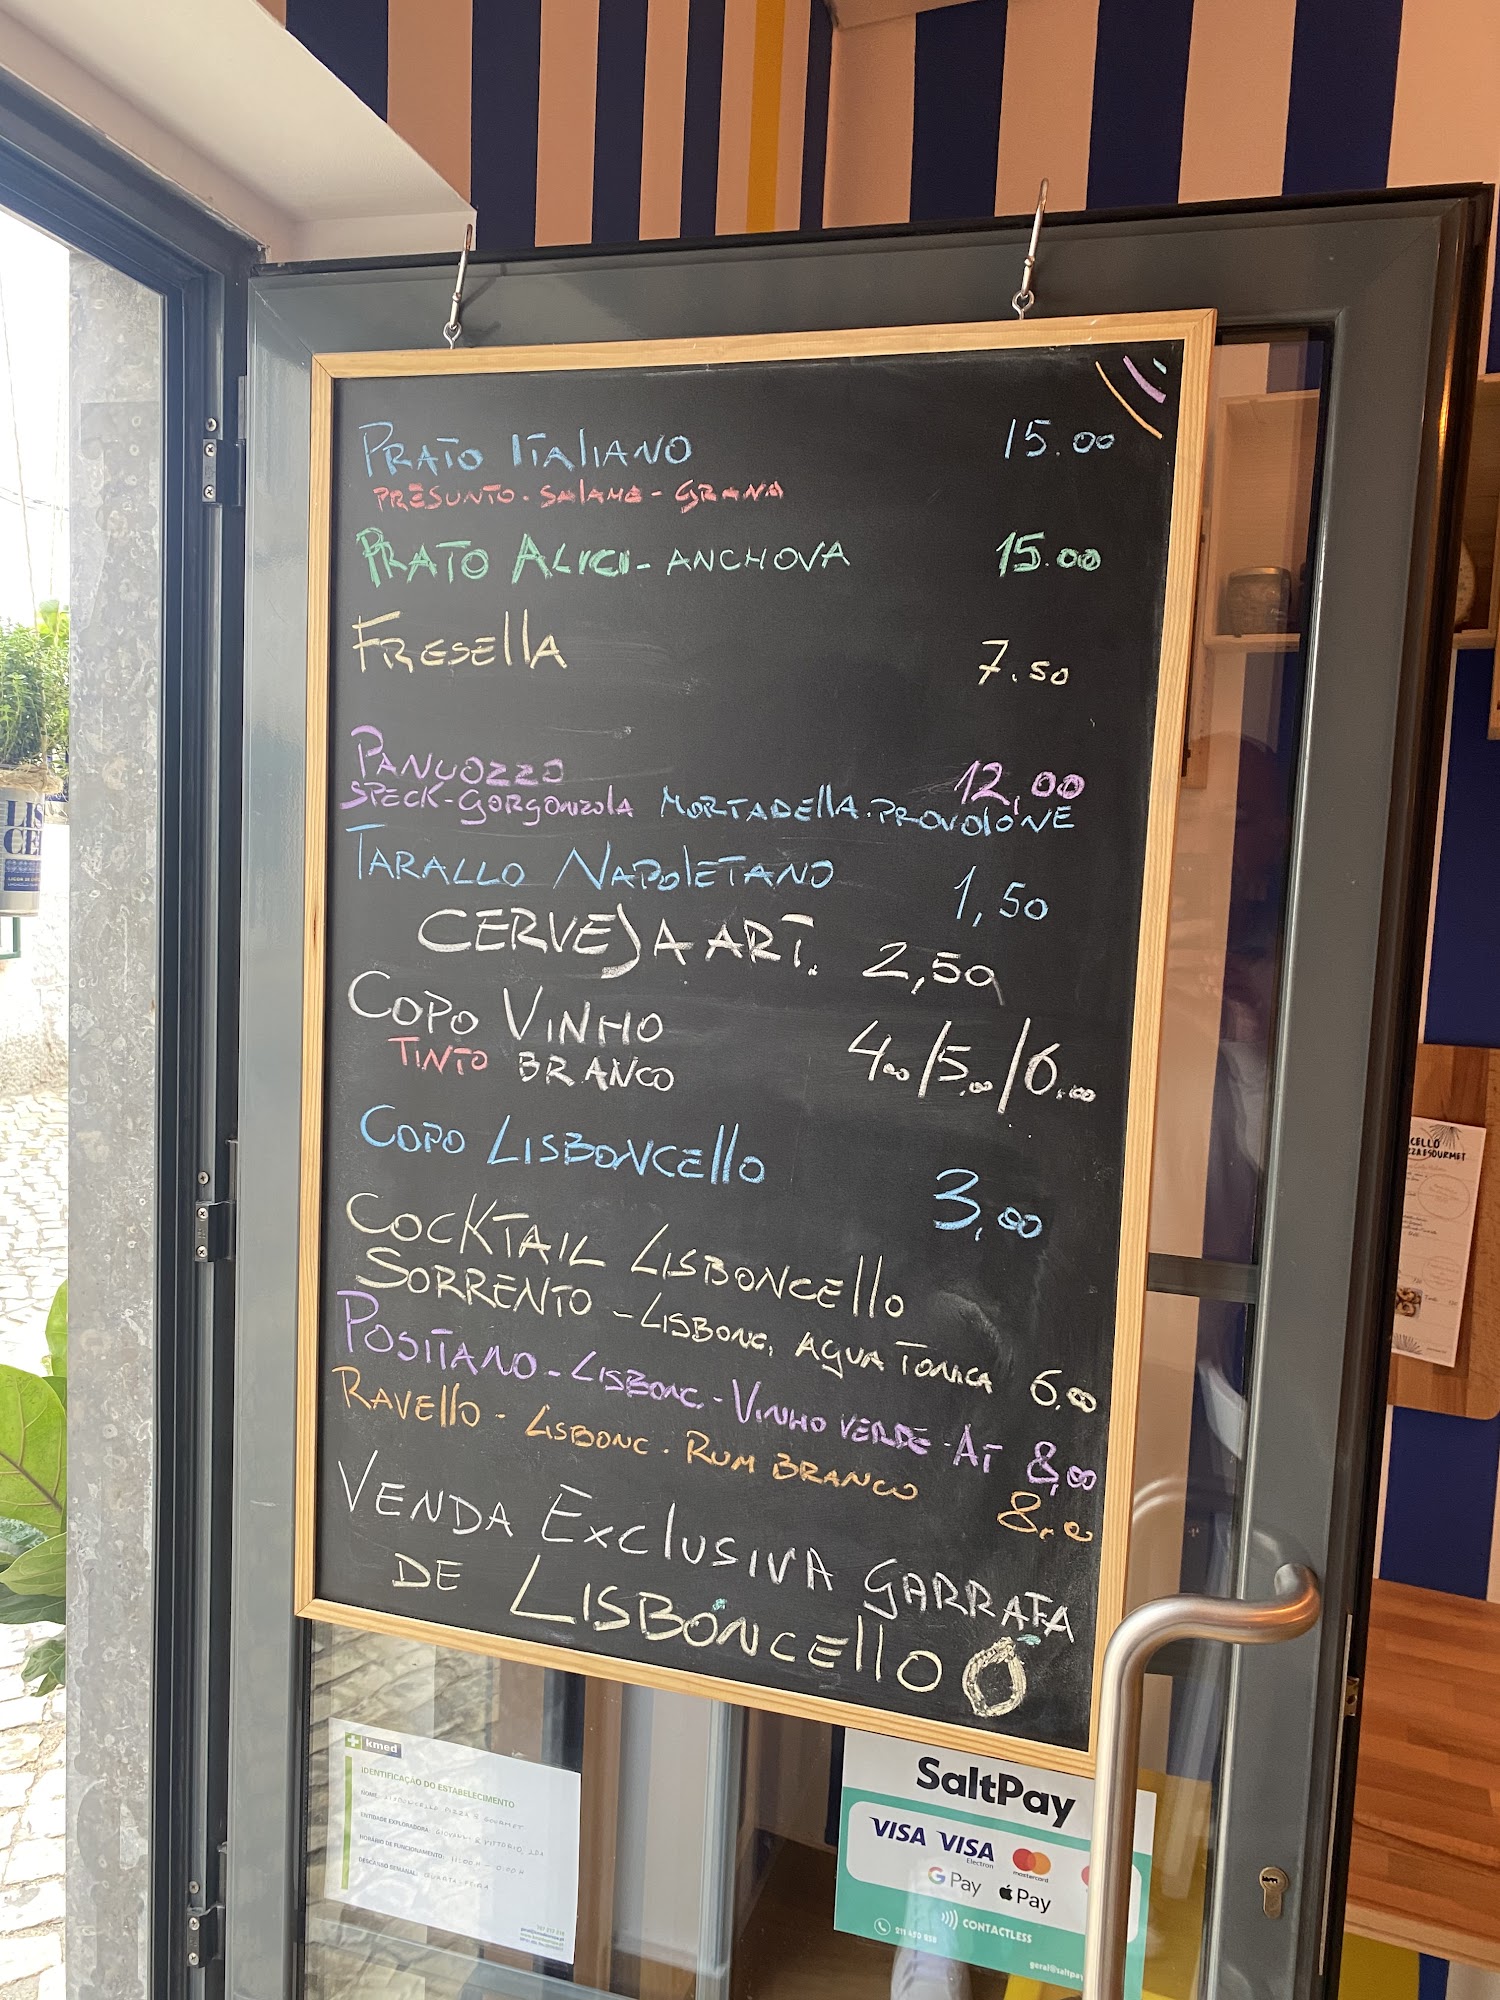 PRATO ITALIANO 15.00
PRESUNTO. SALAME - GRANA
PRATO ALICI - ANCHOVA 15.00
FRESELLA 7.50
PANUOZZO 12,00
SPECK-GORGONZOLA MORTADELLA.PROVOLONE
TARALLO NAPOLETANO 1,50
CERVEJA ART. 2,50
COPO VINHO 4,00/5,00/6,00
TINTO BRANCO
COPO LISBONCELLO 3,00
COCKTAIL LISBONCELLO
SORRENTO - LISBONC, AGUA TONICA 6,00
POSITANO - LISBONC. - VINHO VERDE - AT 8,00
RAVELLO - LISBONC. RUM BRANCO 8,0
VENDA EXCLUSIVA GARRAFA
DE LISBONCELLO
kmed
IDENTIFICAÇÃO DO ESTABELECIMENTO
NOME: LISBONCELLO PIZZA E GOURMET
ENTIDADE EXPLORADORA: GIOVANNI & VITTORIO, LDA
HORÁRIO DE FUNCIONAMENTO: 11:00H - 0:00H
DESCANSO SEMANAL: QUARTA-FEIRA
SaltPay
VISA VISA
Electron
mastercard
G Pay Pay
CONTACTLESS
LIS
CE